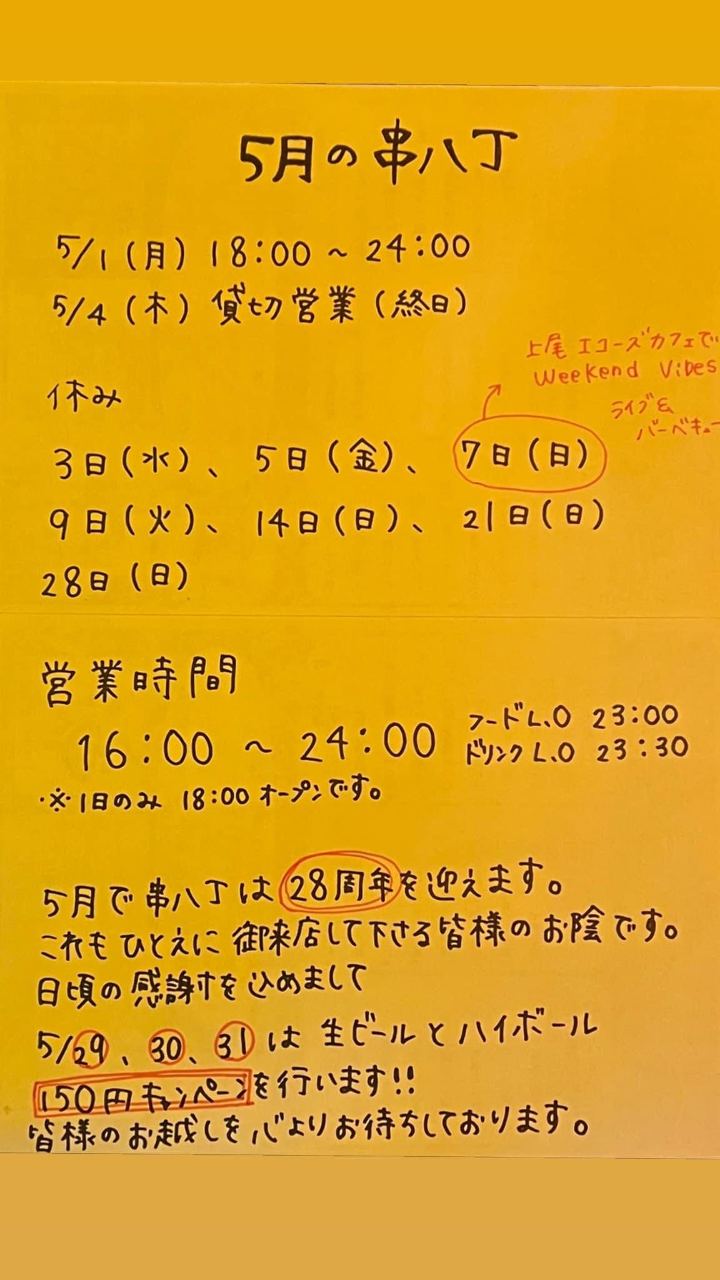 5月の串八丁
5/1(月) 18:00 ~ 24:00
5/4(木) 貸切営業(終日)
上尾 エコーズカフェで
Weekend Vibes
ライブ&
バーベキュー
休み
3日(水)、5日(金)、7日(日)
9日(火)、14日(日)、21日(日)
28日(日)
営業時間
16:00 ~ 24:00
フードL.O 23:00
ドリンクL.O 23:30
※1日のみ 18:00 オープンです。
5月で串八丁は28周年を迎えます。
これもひとえに御来店して下さる皆様のお陰です。
日頃の感謝を込めまして
5/29、30、31は生ビールとハイボール
150円キャンペーンを行います!!
皆様のお越しを心よりお待ちしております。